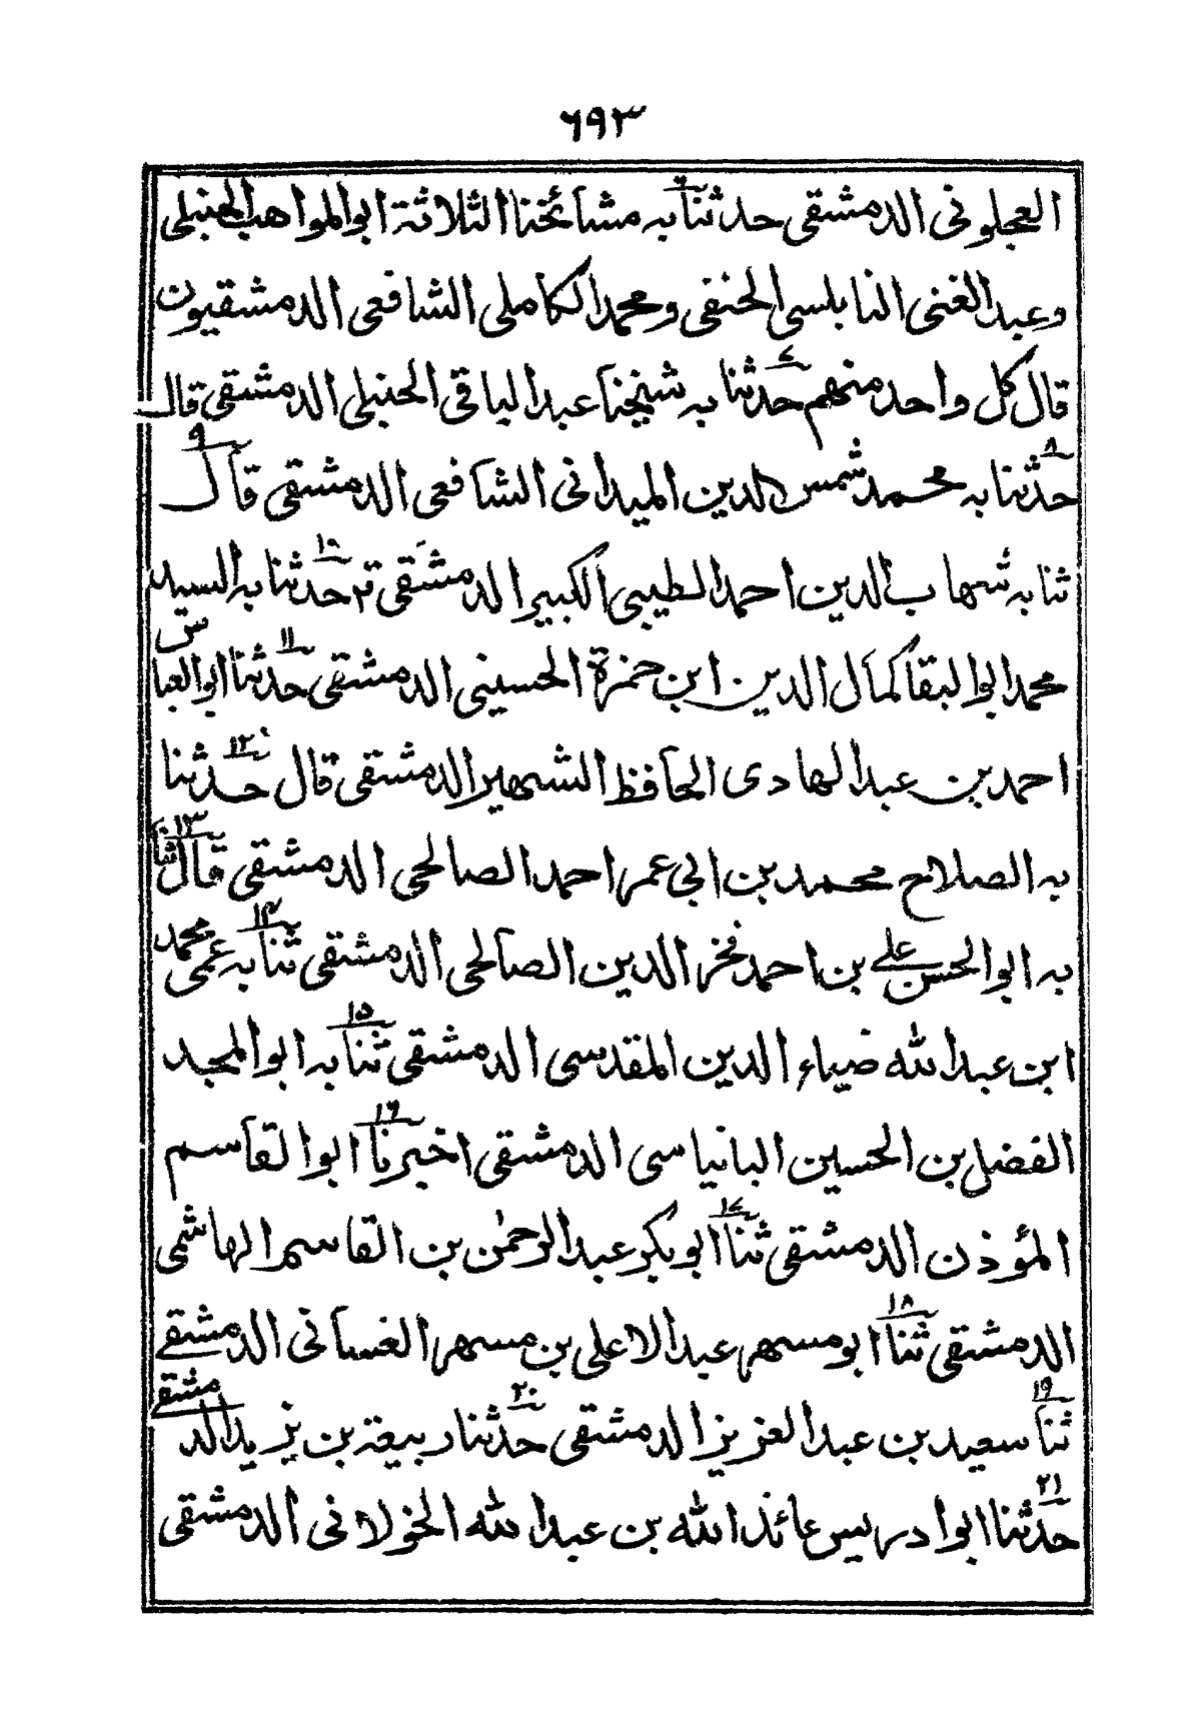 ٦٩٣
العجلونی الدمشقی حدثنا به مشائخنا الثلاثة ابوالمواهب الحنبلی
وعبدالغنی النابلسی الحنفی ومحمد الکاملی الشافعی الدمشقیون
قال کل واحد منهم حدثنا به شیخنا عبدالباقی الحنبلی الدمشقی قال
حدثنا به محمد شمس الدین المیدانی الشافعی الدمشقی قال
ثنا به شهاب الدین احمد الطیبی الکبیر الدمشقی حدثنا به السید
محمد ابوالبقا کمال الدین ابن حمزة الحسینی الدمشقی حدثنا ابوالعباس
احمد بن عبدالهادی الحافظ الشهیر الدمشقی قال حدثنا
به الصلاح محمد بن ابی عمر احمد الصالحی الدمشقی قال ثنا
به ابوالحسن علی بن احمد فخر الدین الصالحی الدمشقی ثنا به عمی محمد
ابن عبدالله ضیاء الدین المقدسی الدمشقی ثنا به ابوالمجد
الفضل بن الحسین البانیاسی الدمشقی اخبرنا ابوالقاسم
المؤذن الدمشقی ثنا ابوبکر عبدالرحمن بن القاسم الهاشمی
الدمشقی ثنا ابومسهر عبدالاعلی بن مسهر الغسانی الدمشقی
ثنا سعید بن عبدالعزیز الدمشقی حدثنا ربیعة بن یزید الدمشقی
حدثنا ابوادریس عائذالله بن عبدالله الخولانی الدمشقی